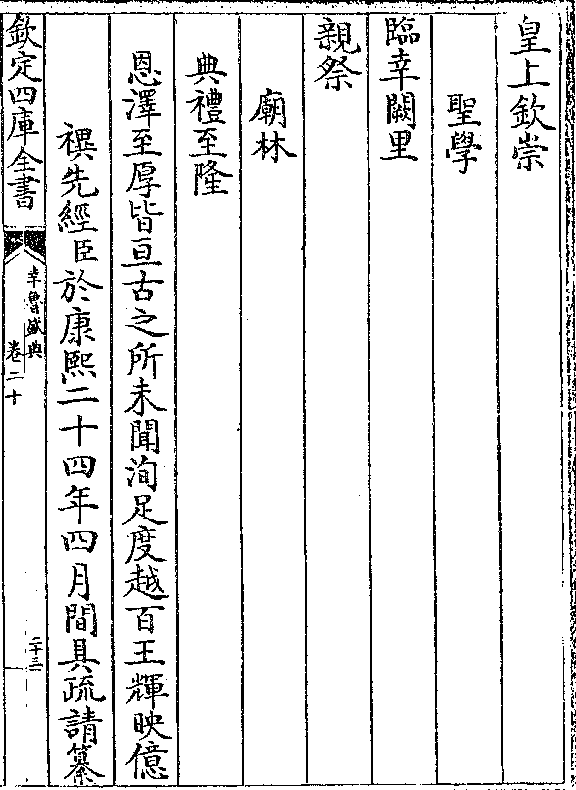 皇上欽崇
聖學
臨幸闕里
親祭
廟林
典禮至隆
恩澤至厚皆亘古之所未聞洵足度越百王輝映億
禩先經臣於康熙二十四年四月間具疏請纂
欽定四庫全書
幸魯盛典
卷二十
二十三